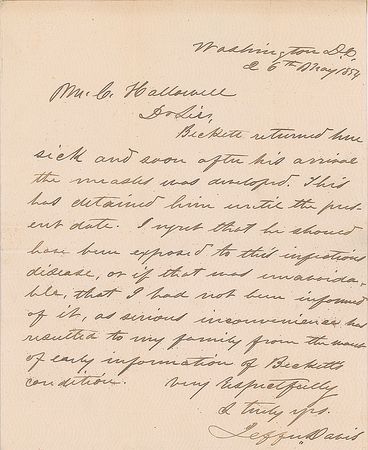 Washington D.C.
26th May 1854
Wm. C. Hallowell
Dr Sir,
Beckett returned here
sick and soon after his arrival
the measles was developed. This
has detained him until the pres-
ent date. I regret that he should
have been exposed to this infectious
disease, or if that was unavoida-
ble, that I had not been informed
of it, as serious inconvenience has
resulted to my family from the want
of early information of Becketts
condition. Very Respectfully
& truly yrs.
Jeffn. Davis